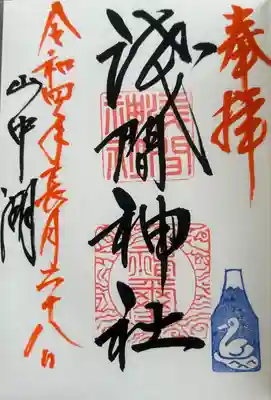 奉拝
淺間神社
令和四年長月二十八日
山中湖